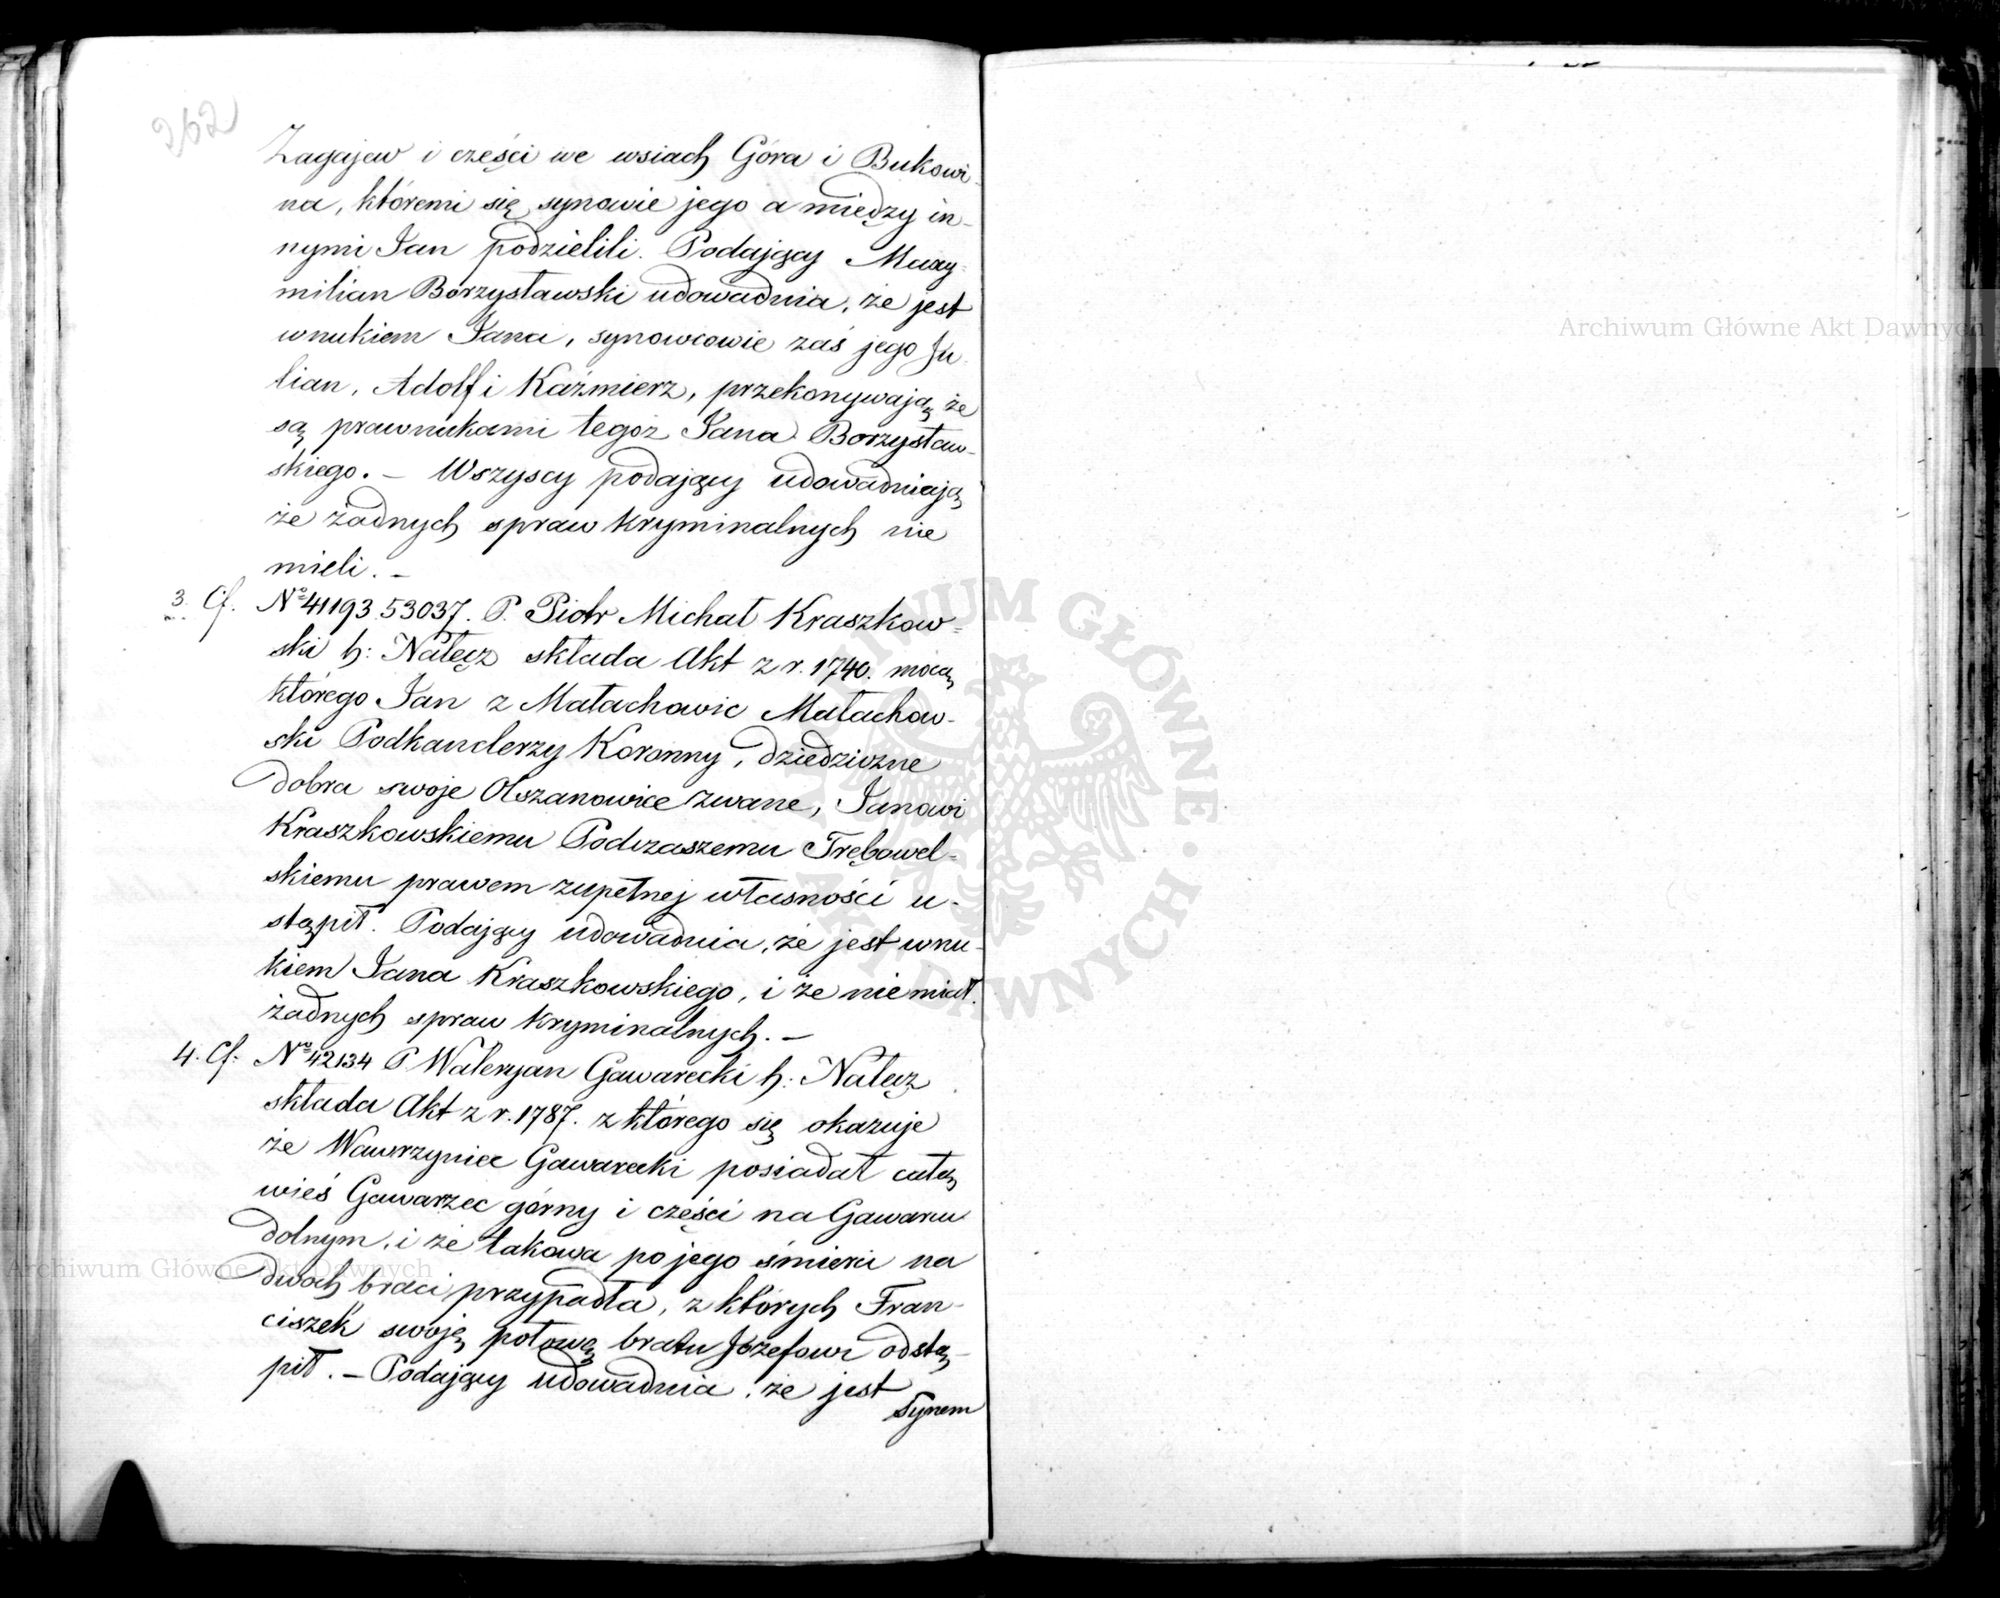 262
Zagajew i części we wsiach Góra i Bukowi-
na, któremi się synowie jego a między in-
nymi Jan podzielili. Podający Maxy-
milian Borzysławski udowadnia, że jest
wnukiem Jana, synowcowie zaś jego Ju-
lian, Adolf i Kaźmierz, przekonywają że
są prawnukami tegoż Jana Borzysław-
skiego. – Wszyscy podający udowadniają
że żadnych spraw kryminalnych nie
mieli. –
3. Cf. No 41193 53037. P. Piotr Michał Kraszkow-
ski h: Nałęcz składa Akt z r. 1740. mocą
którego Jan z Małachowic Małachow-
ski Podkanclerzy Koronny, dziedziczne
dobra swoje Olszanowice zwane, Janowi
Kraszkowskiemu Podczaszemu Trębowel-
skiemu prawem zupełnej własności u-
stąpił. Podający udowadnia, że jest wnu-
kiem Jana Kraszkowskiego, i że nie miał
żadnych spraw kryminalnych. –
4. Cf. No 42134 P. Waleryan Gawarecki h: Nałęcz
składa Akt z r. 1787. z którego się okazuje
że Wawrzyniec Gawarecki posiadał całą
wieś Gawarzec górny i części na Gawarcu
dolnym, i że takowa po jego śmierci na
dwóch braci przypadła, z których Fran-
ciszek swoję połowę bratu Józefowi odstą-
pił. – Podający udowadnia, że jest
Synem
Archiwum Główne Akt Dawnych
Archiwum Główne Akt Dawnych
ARCHIWUM GŁÓWNE AKT DAWNYCH